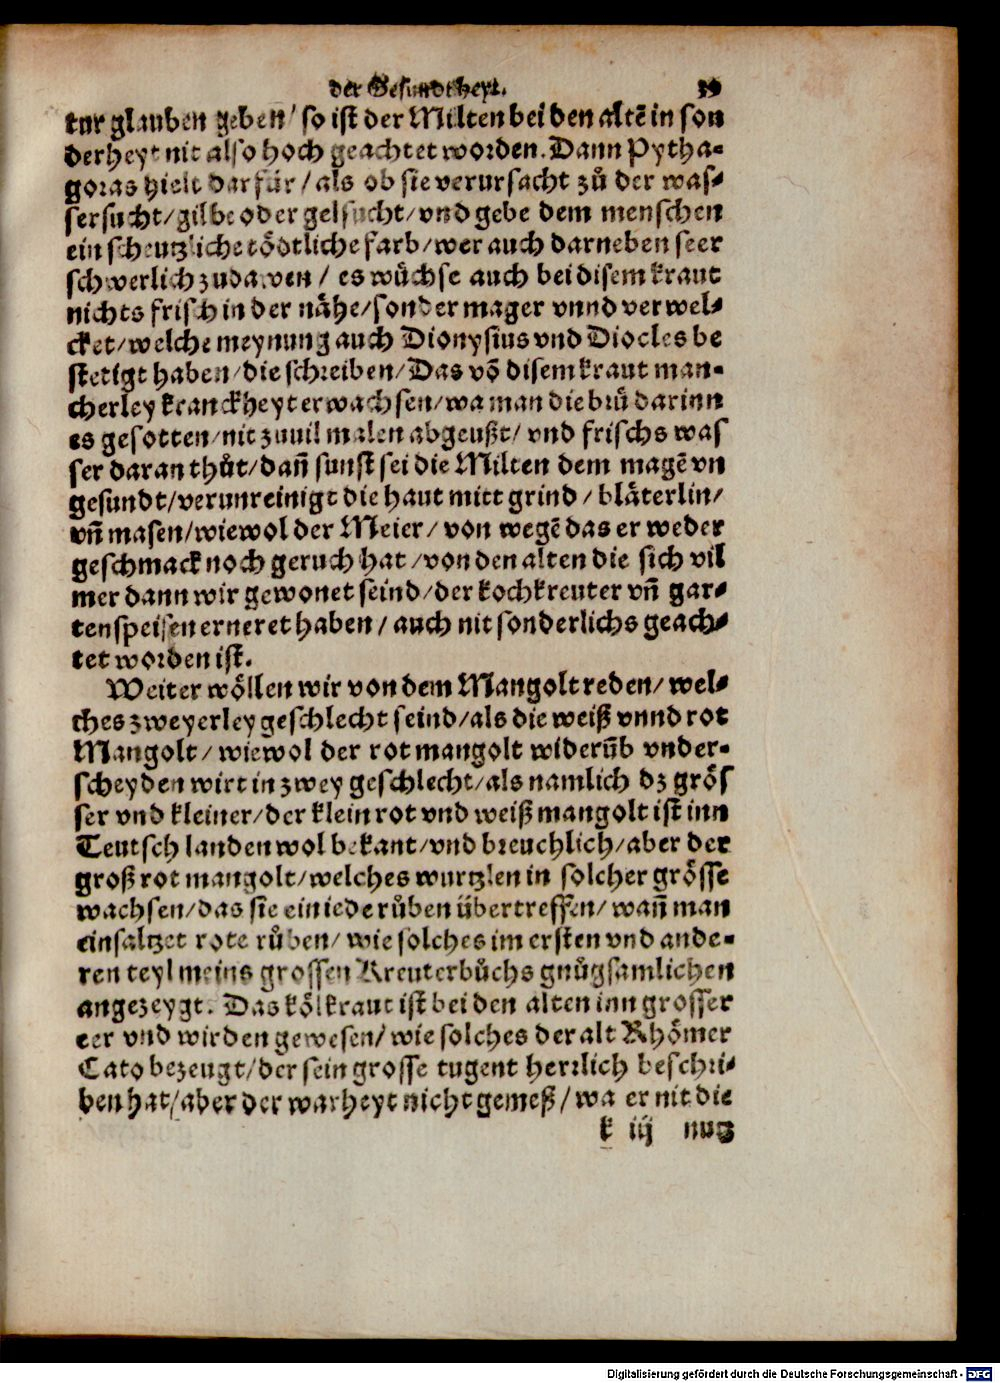 der Gesundtheyt. 39
tur glauben geben / so ist der Milten bei den altẽ in son
derheyt nit also hoch geachtet worden. Dann Pytha-
goras hielt darfür / als ob sie verursacht zů der was-
sersucht / gilbe oder gelsucht / vnd gebe dem menschen
ein scheutzliche tödtliche farb / wer auch darneben seer
schwerlich zudawen / es wůchse auch bei disem kraut
nichts frisch in der nähe / sonder mager vnnd verwel-
cket / welche meynung auch Dionysius vnd Diocles be
stetigt haben / die schreiben / Das võ disem kraut man-
cherley kranckheyt erwachsen / wa man die brů darinn
es gesotten / nit zuuil malen abgeußt / vnd frischs was
ser daran thůt / dañ sunst sei die Milten dem magẽ vn
gesundt / verunreinigt die haut mitt grind / bläterlin /
vñ masen / wiewol der Meier / von wegẽ das er weder
geschmack noch geruch hat / von den alten die sich vil
mer dann wir gewonet seind / der kochkreuter vñ gar-
tenspeisen erneret haben / auch nit sonderlichs geach-
tet worden ist.
Weiter wöllen wir von dem Mangolt reden / wel-
ches zweyerley geschlecht seind / als die weiß vnnd rot
Mangolt / wiewol der rot mangolt widerũb vnder-
scheyden wirt in zwey geschlecht / als namlich dz grös
ser vnd kleiner / der klein rot vnd weiß mangolt ist inn
Teutsch landen wol bekant / vnd breuchlich / aber der
groß rot mangolt / welches wurtzlen in solcher grösse
wachsen / das sie ein iede růben übertreffen / wañ man
einsaltzet rote růben / wie solches im ersten vnd ande-
ren teyl meins grossen Kreuterbůchs gnůgsamlichen
angezeygt. Das kölkraut ist bei den alten inn grosser
eer vnd wirden gewesen / wie solches der alt Rhömer
Cato bezeugt / der sein grosse tugent herrlich beschri-
ben hat / aber der warheyt nicht gemeß / wa er nit die
k iij nutz
Digitalisierung gefördert durch die Deutsche Forschungsgemeinschaft - DFG